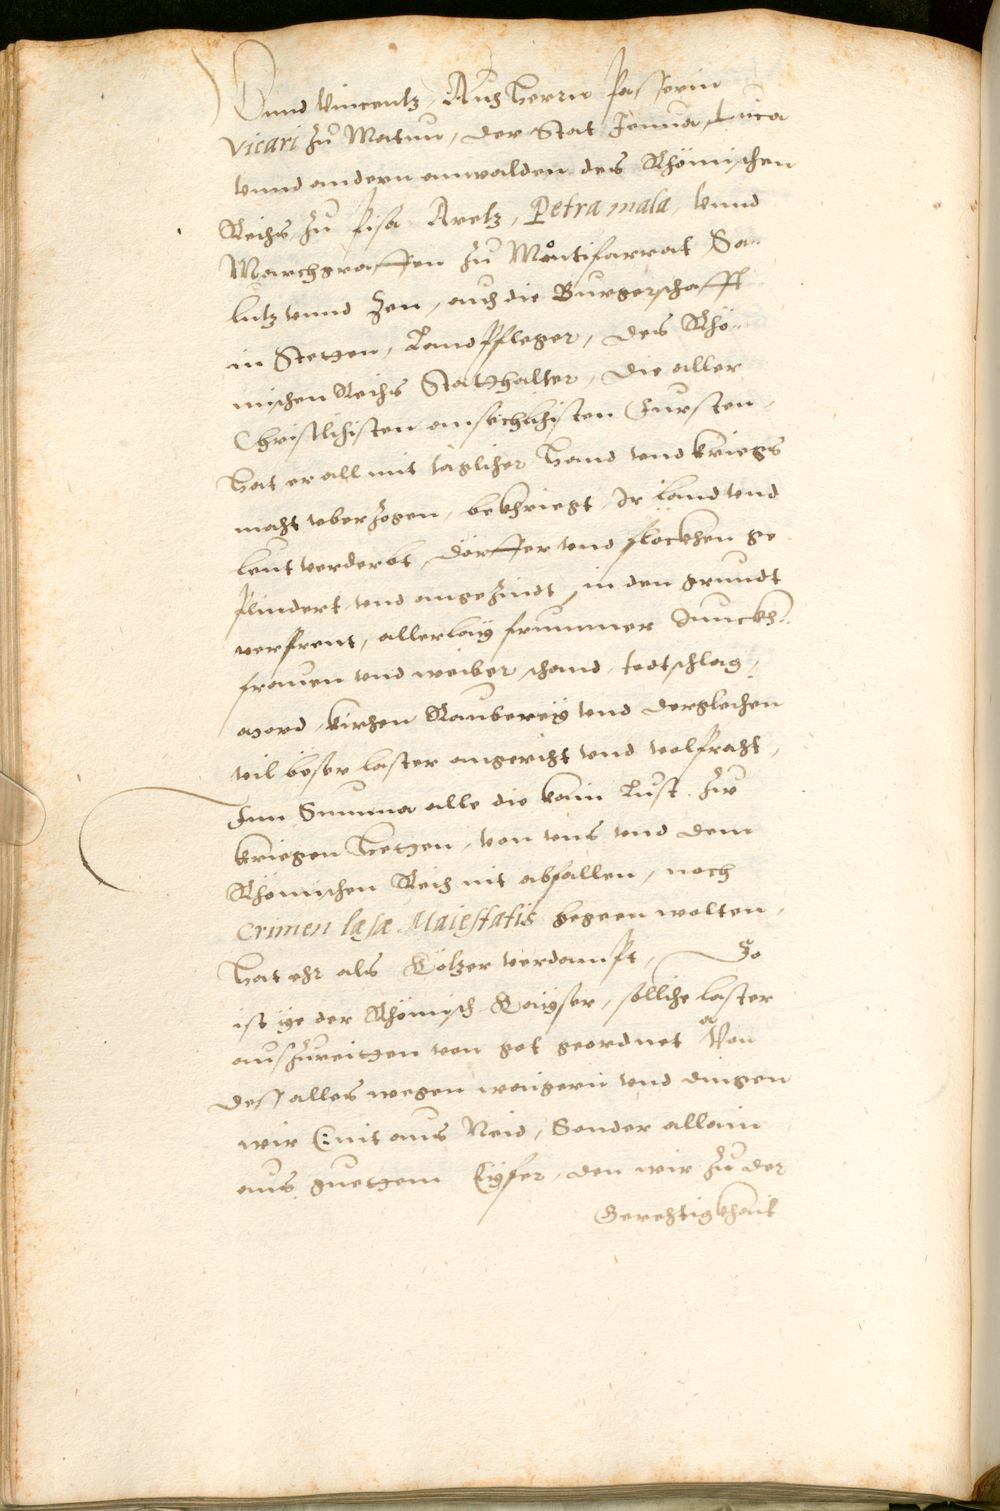 Vnnd Vincentz, Auch herrn Passerin
Vicari zů Mantua, der Stat Jenua, Luca
vnnd andern anwalden des Rhömischen
Reichs zů Pisa Aretz, Petra mala, vnnd
Marchgraffen zů Montiferrat Sa-
lutz vnnd Zen, auch die Burgerschafft
in Stetten, Landpfleger, des Rhö-
mischen Reichs Stathalter, die aller
Christlichisten ansechlichisten Fursten,
hat er all mit täglicher hand vnd kriegs
macht vberzogen, bekhriegt, Ir Land vnd
leut verderbt, dörffer vnd flöckhen ge
plindert vnd angezindt, in den grundt
verprent, allerlay frummer Junckh-
frauen vnd weiber schand, todtschlag,
mord, kirchen Rauberey vnd dergleichen
vil böser laster angericht vnd volpracht,
Inn Summa alle die kain Lust zů
kriegen hetten, von vns vnd dem
Rhömischen Reich nit abfallen, noch
Crimen læsæ Maiestatis begeen wolten,
hat ehr als Kötzer verdampt, So
ist ye der Rhömisch Kayser, solliche laster
auszureitten von got geordnet Von
dess alles wegen waigern vnd dingen
wir nit aus Neid, Sonder allain
aus guettem Eyfer, den wir zů der
Gerechtigkhait